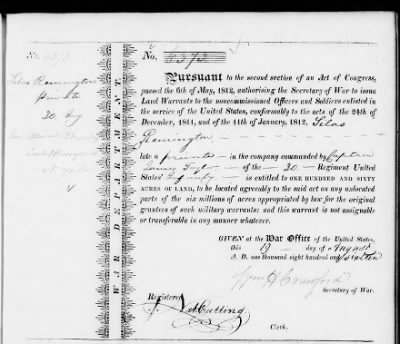 No. 6373
Silas Remington
private
20
No. 6373
Pursuant to the second section of an Act of Congress,
passed the 6th of May, 1812, authorising the Secretary of War to issue
Land Warrants to the noncommissioned Officers and Soldiers enlisted
in the service of the United States, conformably to the acts of the 24th of
December, 1811, and of the 11th of January, 1812, Silas
Remington
late a private in the company commanded by Captain
of the 20 Regiment United
States' Infantry is entitled to ONE HUNDRED AND SIXTY
ACRES OF LAND, to be located agreeably to the said act on any unlocated
part of the six millions of acres appropriated by law for the original
grantees of such military warrants; and this warrant is not assignable
or transferable in any manner whatever.
GIVEN at the War Office of the United States,
this day of August
A. D. one thousand eight hundred and sixteen
Wm H Crawford
Secretary of War.
Registered
Cutting
Clerk.
WAR DEPARTMENT.